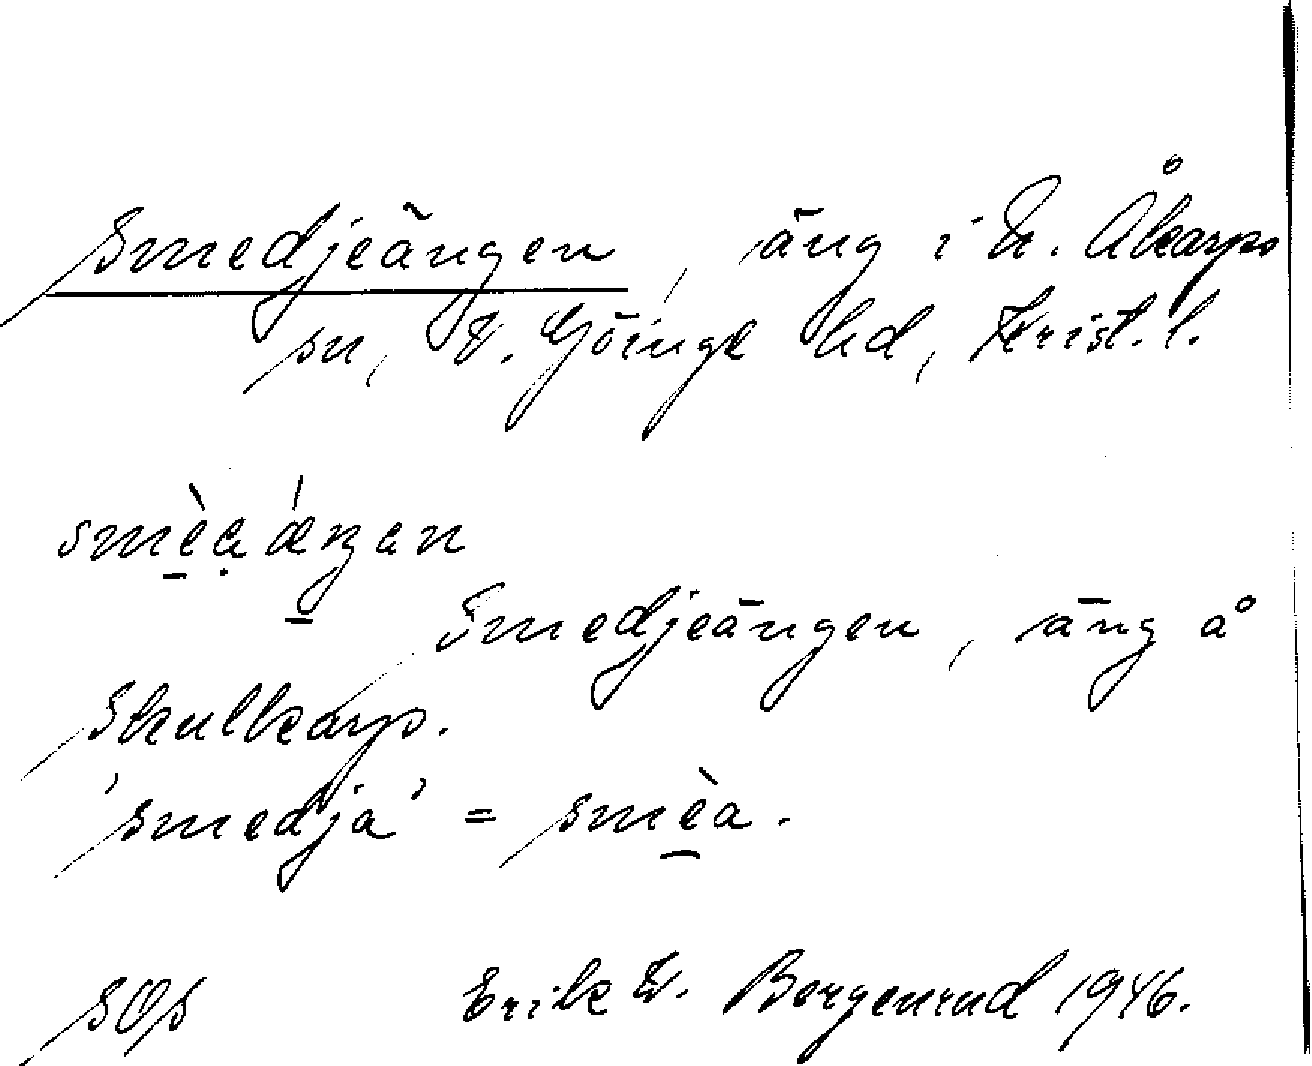 Smedjeängen, äng i N. Åkarps
sn, V. Göinge hd, Krist. l.
smèa ǽŋan
Smedjeängen, äng å
Skulkarp.
'smedja' = smèa.
SOS Erik W. Bergenrud 1946.